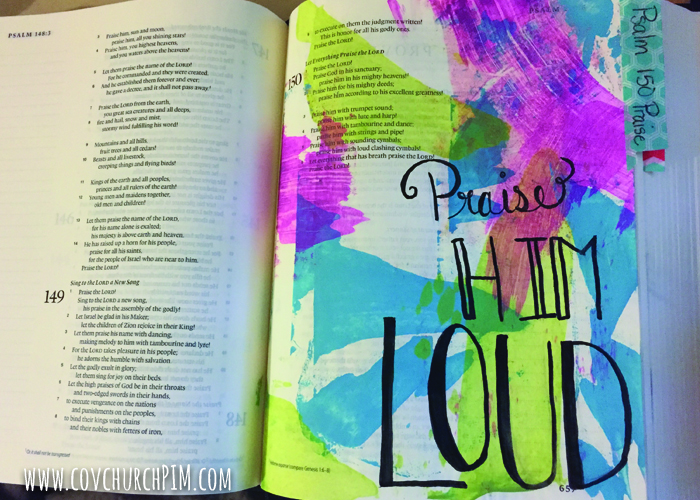 PSALM 148:3
3 Praise him, sun and moon,
praise him, all you shining stars!
4 Praise him, you highest heavens,
and you waters above the heavens!
5 Let them praise the name of the LORD!
For he commanded and they were created.
6 And he established them forever and ever;
he gave a decree, and it shall not pass away.
7 Praise the LORD from the earth,
you great sea creatures and all deeps,
8 fire and hail, snow and mist,
stormy wind fulfilling his word!
9 Mountains and all hills,
fruit trees and all cedars!
10 Beasts and all livestock,
creeping things and flying birds!
11 Kings of the earth and all peoples,
princes and all rulers of the earth!
12 Young men and maidens together,
old men and children!
13 Let them praise the name of the LORD,
for his name alone is exalted;
his majesty is above earth and heaven.
14 He has raised up a horn for his people,
praise for all his saints,
for the people of Israel who are near to him.
Praise the LORD!
Sing to the LORD a New Song
149 1 Praise the LORD!
Sing to the LORD a new song,
his praise in the assembly of the godly!
2 Let Israel be glad in his Maker;
let the children of Zion rejoice in their King!
3 Let them praise his name with dancing,
making melody to him with tambourine and lyre!
4 For the LORD takes pleasure in his people;
he adorns the humble with salvation.
5 Let the godly exult in glory;
let them sing for joy on their beds.
6 Let the high praises of God be in their throats
and two-edged swords in their hands,
7 to execute vengeance on the nations
and punishments on the peoples,
8 to bind their kings with chains
and their nobles with fetters of iron,
PSALM
9 to execute on them the judgment written!
This is honor for all his godly ones.
Praise the LORD!
Let Everything Praise the LORD
150 Praise the LORD!
Praise God in his sanctuary;
praise him in his mighty heavens!
Praise him for his mighty deeds;
praise him according to his excellent greatness!
Praise him with trumpet sound;
praise him with lute and harp!
Praise him with tambourine and dance;
praise him with strings and pipe!
Praise him with sounding cymbals;
praise him with loud clashing cymbals!
Let everything that has breath praise the LORD!
Praise the LORD!
Psalm 150 Praise
Praise
HIM
LOUD
WWW.COVCHURCHPIM.COM